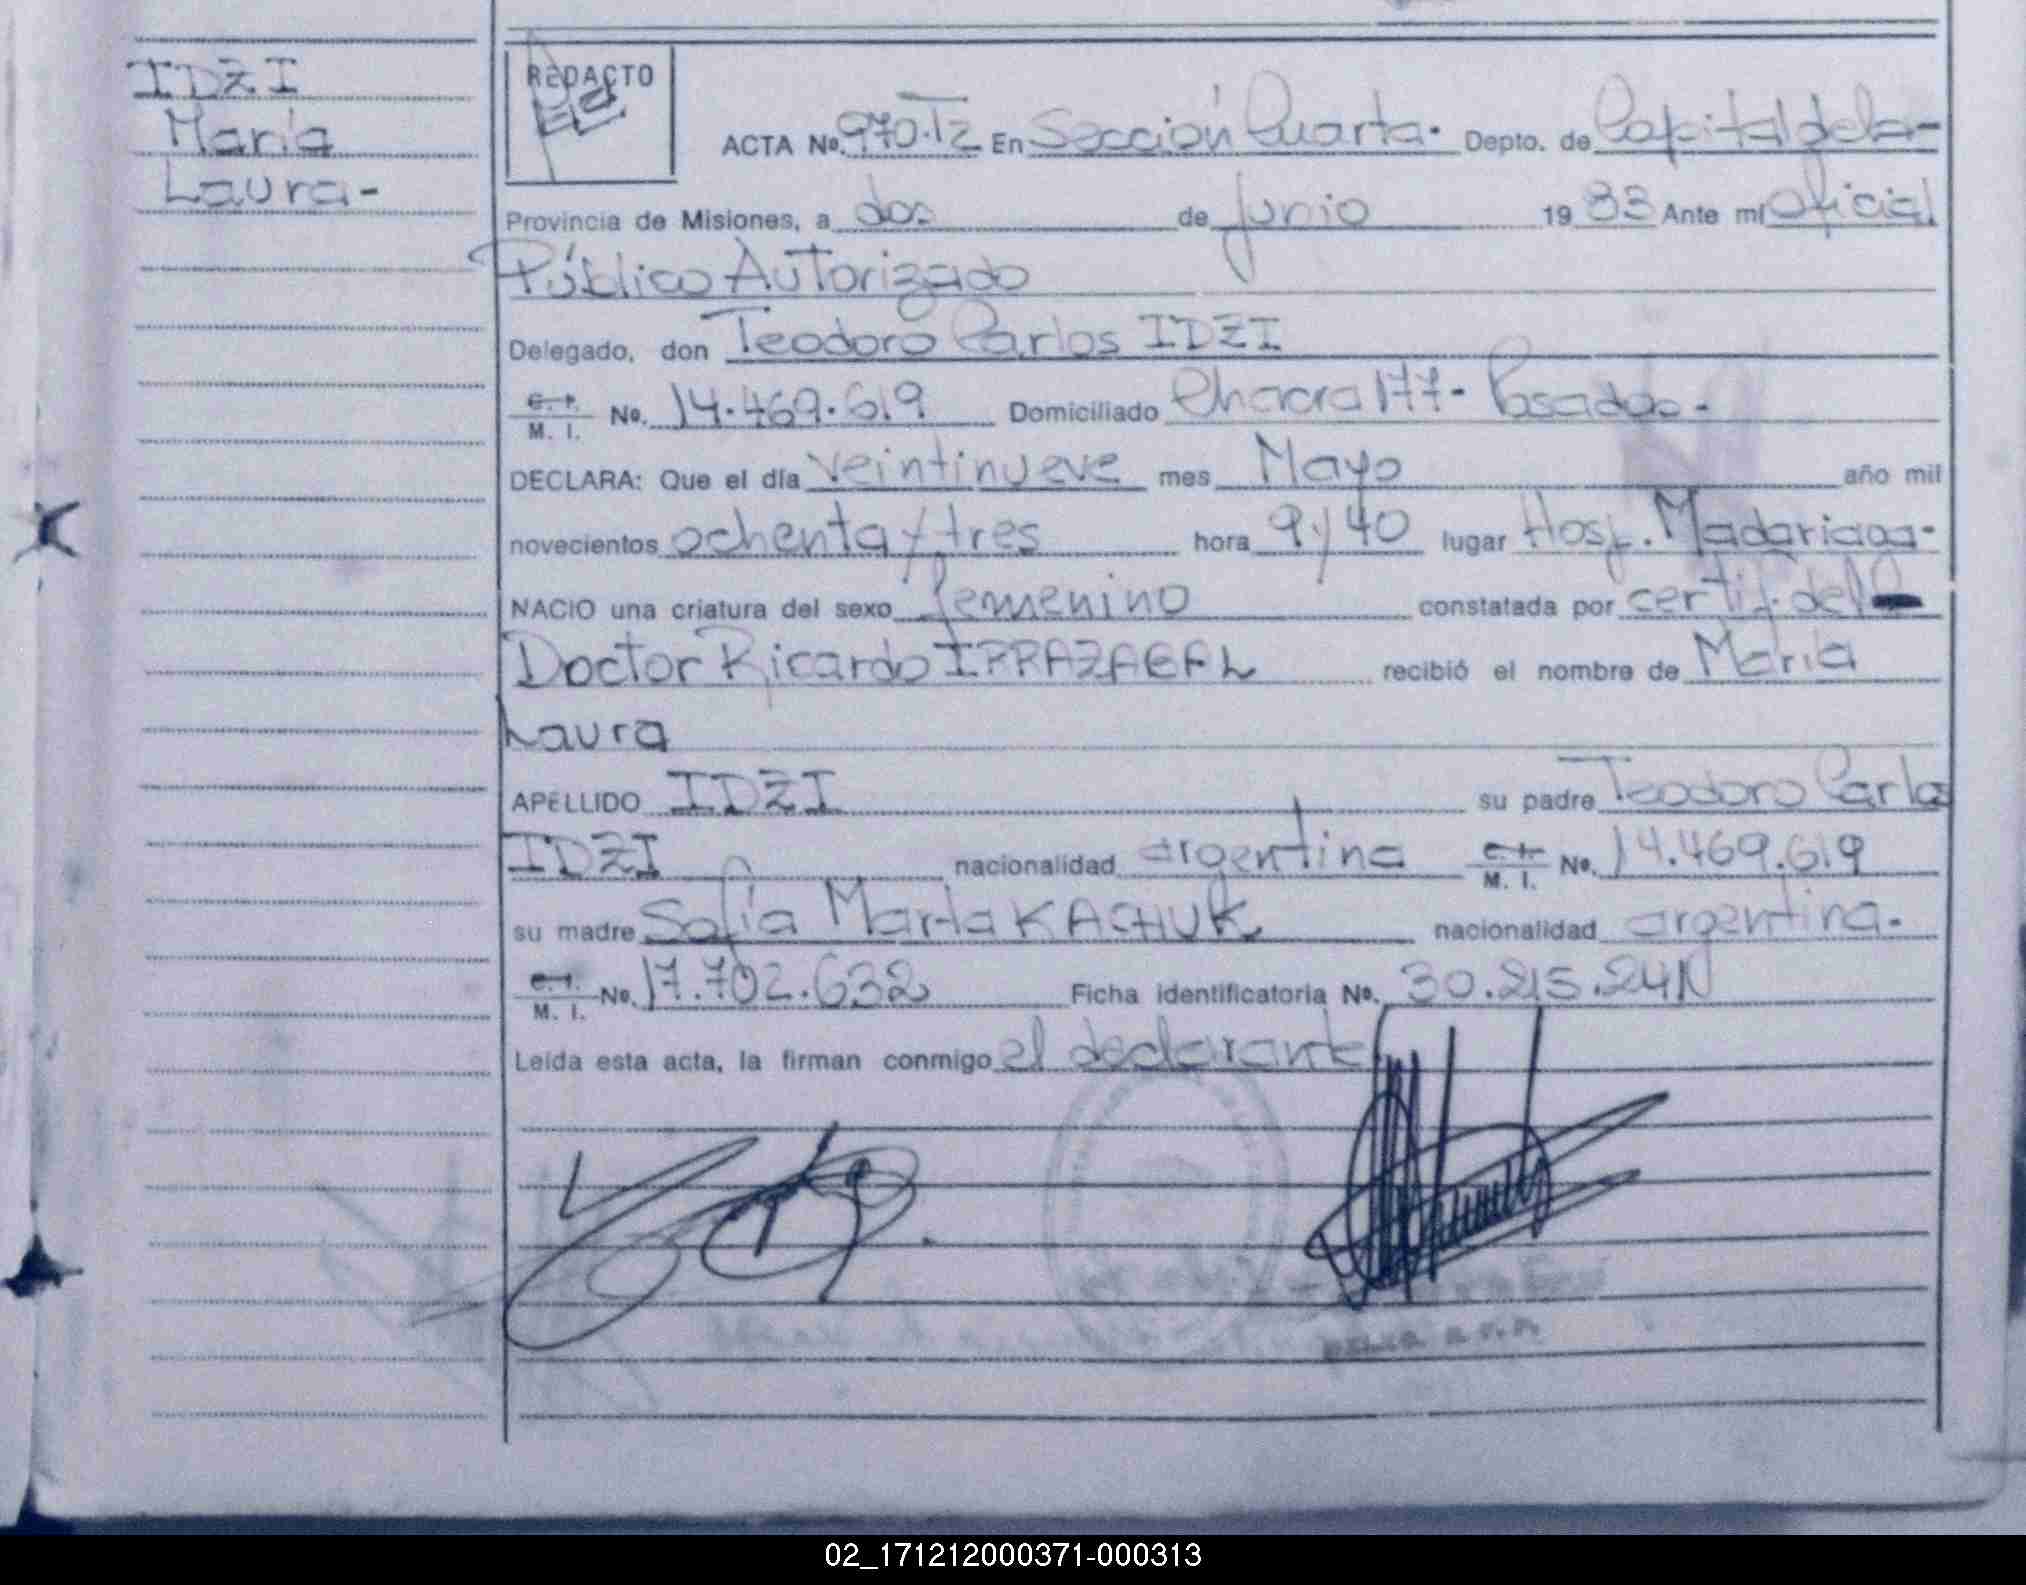 IDZI
María
Laura-
REDACTO
ACTA No. 970.T2 En Sección Cuarta. Depto. de Capital de la-
Provincia de Misiones, a dos de Junio 1983 Ante mí Oficial
Público Autorizado
Delegado, don Teodoro Carlos IDZI
C. I. M. I. No. 14.469.619 Domiciliado Chacra 177- Posadas-
DECLARA: Que el día veintinueve mes Mayo año mil
novecientos ochenta y tres hora 9 y 40 lugar Hosp. Madariaga-
NACIO una criatura del sexo femenino constatada por certif. del
Doctor Ricardo recibió el nombre de María
Laura
APELLIDO IDZI su padre Teodoro Carlos
IDZI nacionalidad argentina C. I. M. I. No. 14.469.619
su madre Sofía Marta nacionalidad argentina.
C. I. M. I. No. 17.702.632 Ficha identificatoria No. 30.215.241
Leída esta acta, la firman conmigo el declarante
02_171212000371-000313